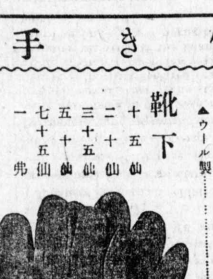 手き
▲ウール製
靴下
十五仙
二十仙
三十五仙
五十仙
七十五仙
一弗